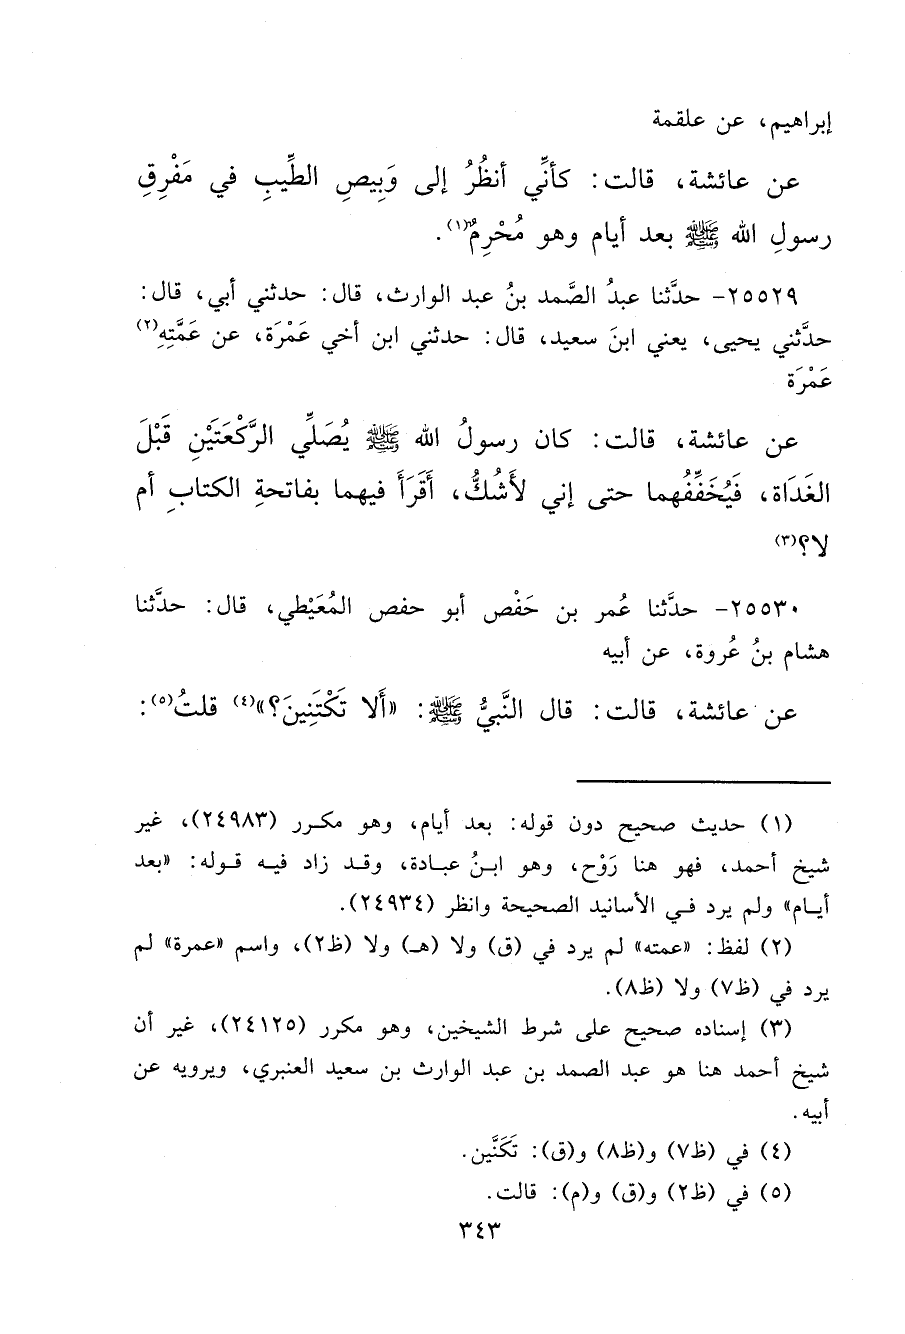 إبراهيم، عن علقمة
عن عائشة، قالت: كأنِّي أنظُرُ إلى وَبِيصِ الطِّيبِ في مَفْرِقِ
رسولِ الله ﷺ بعد أيام وهو مُحْرِمٌ(١).
٢٥٥٢٩- حدَّثنا عبدُ الصَّمد بنُ عبد الوارث، قال: حدثني أبي، قال:
حدَّثني يحيى، يعني ابنَ سعيد، قال: حدثني ابن أخي عَمْرَة، عن عَمَّتِهِ(٢)
عَمْرَة
عن عائشة، قالت: كان رسولُ الله ﷺ يُصَلِّي الرَّكْعَتَيْنِ قَبْلَ
الغَدَاة، فَيُخَفِّفُهما حتى إني لأَشُكُّ، أَقَرَأَ فيهما بفاتحةِ الكتابِ أم
لا؟(٣)
٢٥٥٣٠- حدَّثنا عُمر بن حَفْص أبو حفص المُعَيْطي، قال: حدَّثنا
هشام بنُ عُروة، عن أبيه
عن عائشة، قالت: قال النَّبيُّ ﷺ: «أَلا تَكْتَنِينَ؟»(٤) قلتُ(٥):
(١) حديث صحيح دون قوله: بعد أيام، وهو مكرر (٢٤٩٨٣)، غير
شيخ أحمد، فهو هنا رَوْح، وهو ابنُ عبادة، وقد زاد فيه قوله: «بعد
أيام» ولم يرد في الأسانيد الصحيحة وانظر (٢٤٩٣٤).
(٢) لفظ: «عمته» لم يرد في (ق) ولا (هـ) ولا (ظ٢)، واسم «عمرة» لم
يرد في (ظ٧) ولا (ظ٨).
(٣) إسناده صحيح على شرط الشيخين، وهو مكرر (٢٤١٢٥)، غير أن
شيخ أحمد هنا هو عبد الصمد بن عبد الوارث بن سعيد العنبري، ويرويه عن
أبيه.
(٤) في (ظ٧) و(ظ٨) و(ق): تَكَنَّين.
(٥) في (ظ٢) و(ق) و(م): قالت.
٣٤٣